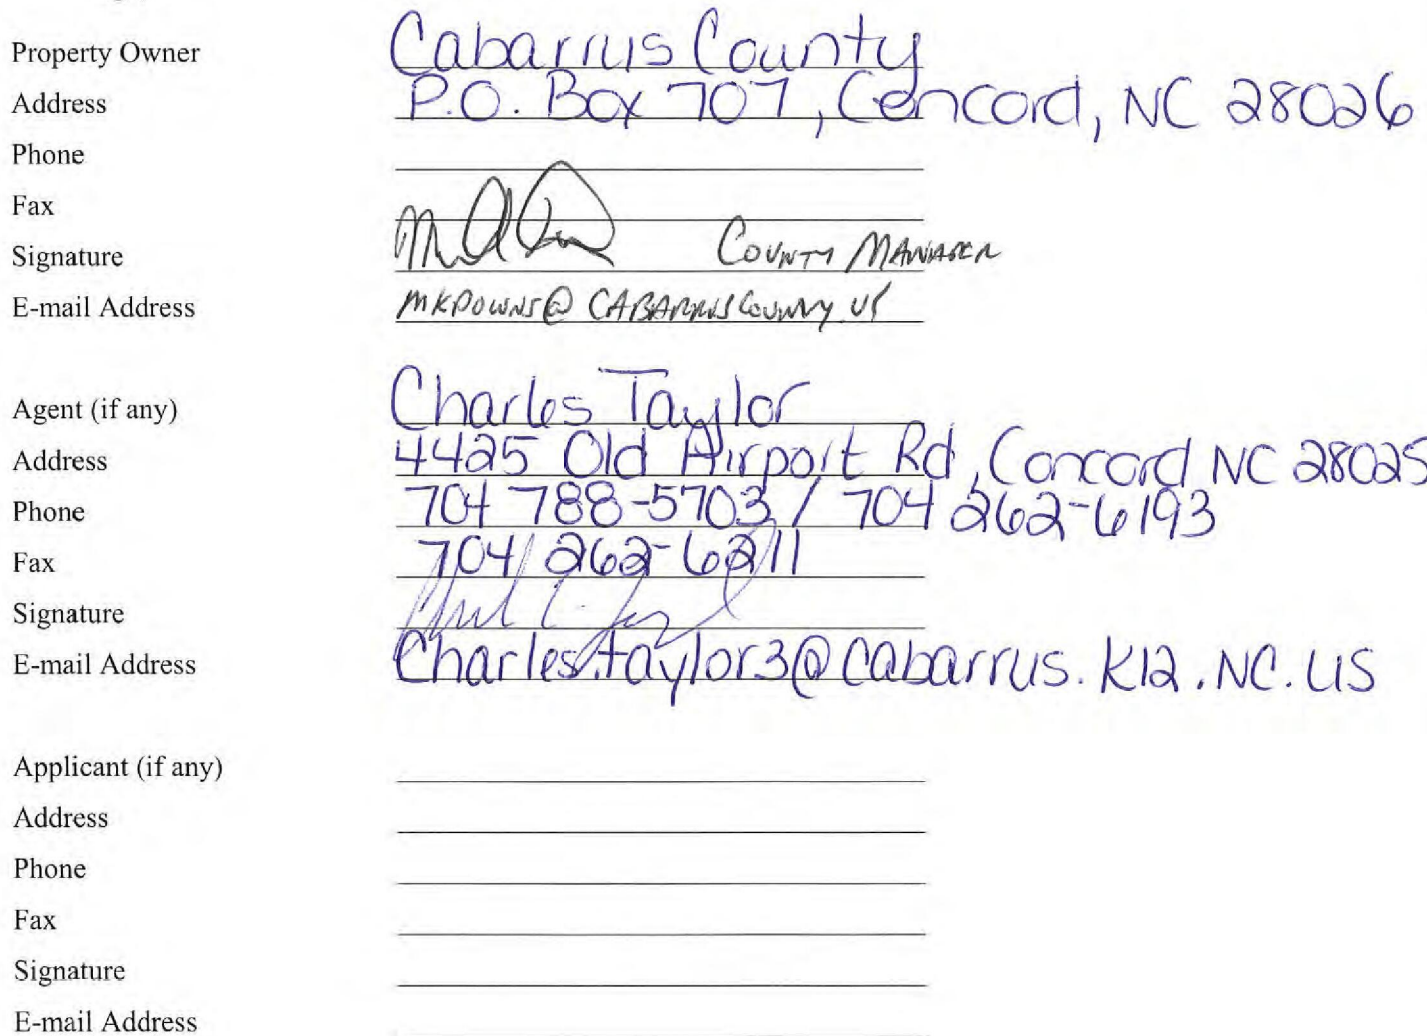 Property Owner Cabarrus County
Address P.O. Box 707, Concord, NC 28026
Phone
Fax
Signature County Manager
E-mail Address MKDOWNS@CABARRUSCOUNTY.US
Agent (if any) Charles Taylor
Address 4425 Old Airport Rd, Concord NC 28025
Phone 704 788-5703 / 704 262-6193
Fax 704 262-6211
Signature
E-mail Address Charles.taylor3@cabarrus.K12.NC.US
Applicant (if any)
Address
Phone
Fax
Signature
E-mail Address